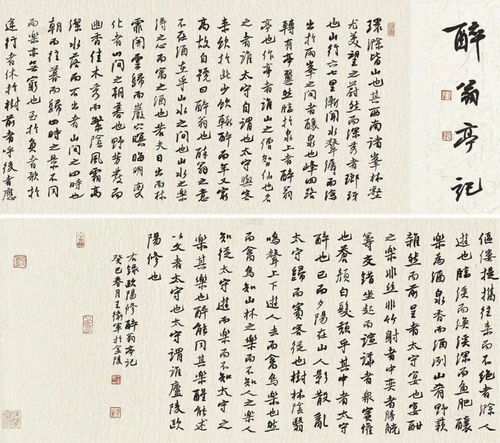 醉翁亭記
環滁皆山也其西南諸峯林壑
尤美望之蔚然而深秀者瑯琊
也山行六七里漸聞水聲潺而瀉
出於兩峯之間者釀泉也峰回路
轉有亭翼然臨於泉上者醉翁
亭也作亭者誰山之僧智仙也名
之者誰太守自謂也太守與客
來飲於此少飲輒醉而年又最
高故自號曰醉翁也醉翁之意
不在酒在乎山水之間也山水之樂
得之心而寓之酒也若夫日出而林
霏開雲歸而巖穴暝晦明變
化者山間之朝暮也野芳發而
幽香佳木秀而繁陰風霜高
潔水落而石出者山間之四時也
朝而往暮而歸四時之景不同
而樂亦無窮也至於負者歌於
途行者休於樹前者呼後者應
傴僂提攜往來而不絕者滁人
遊也臨溪而漁溪深而魚肥釀
泉為酒泉香而酒洌山肴野蔌
雜然而前陳者太守宴也宴酣
之樂非絲非竹射者中奕者勝觥
籌交錯坐起而諠譁者衆賓懽
也蒼顏白髮頹乎其中者太守
醉也已而夕陽在山人影散亂
太守歸而賓客從也樹林陰翳
鳴聲上下遊人去而禽鳥樂也然
而禽鳥知山林之樂而不知人之樂人
知從太守遊而樂而不知太守之
樂其樂也醉能同其樂醒能述
以文者太守也太守謂誰廬陵歐
陽修也
右錄歐陽修醉翁亭記
癸巳春月王衛軍於金陵